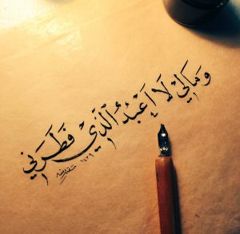 وَمَالِيَ لَا أَعْبُدُ الَّذِي فَطَرَنِي